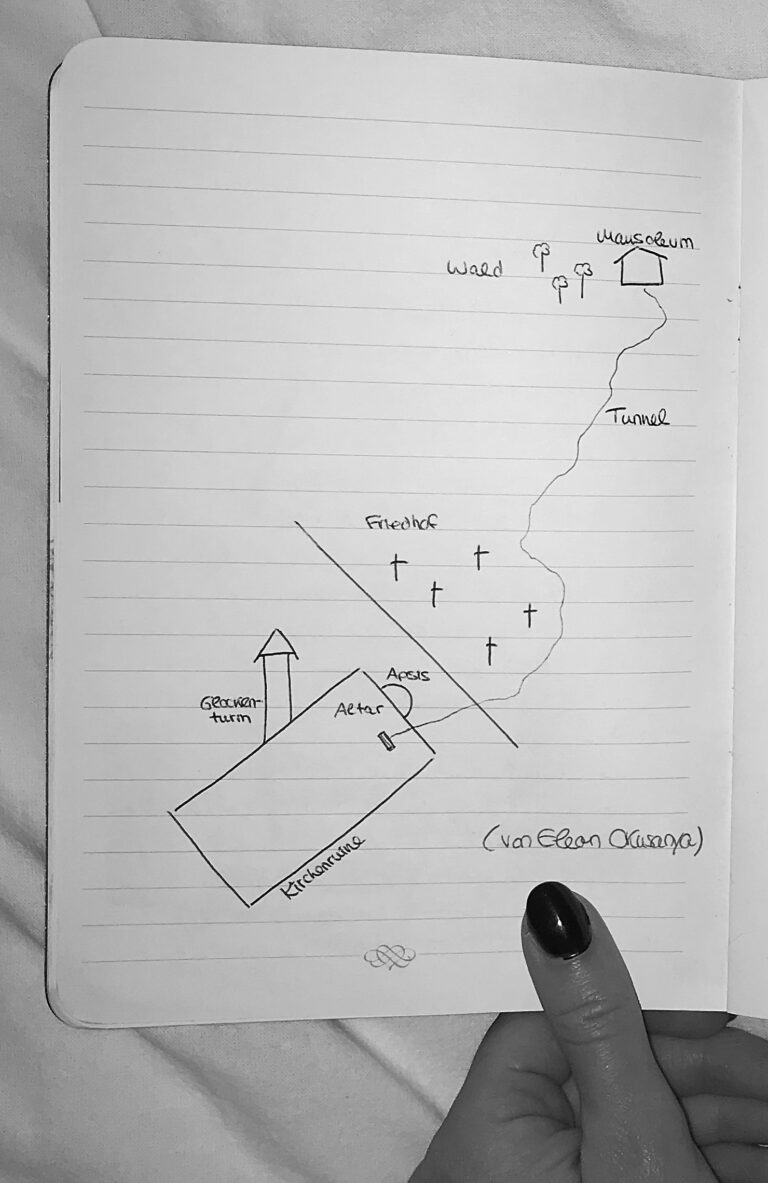 Mausoleum
Wald
Tunnel
Friedhof
Apsis
Glocken-
turm
Altar
Kirchenruine
(von Elean Okusanya)